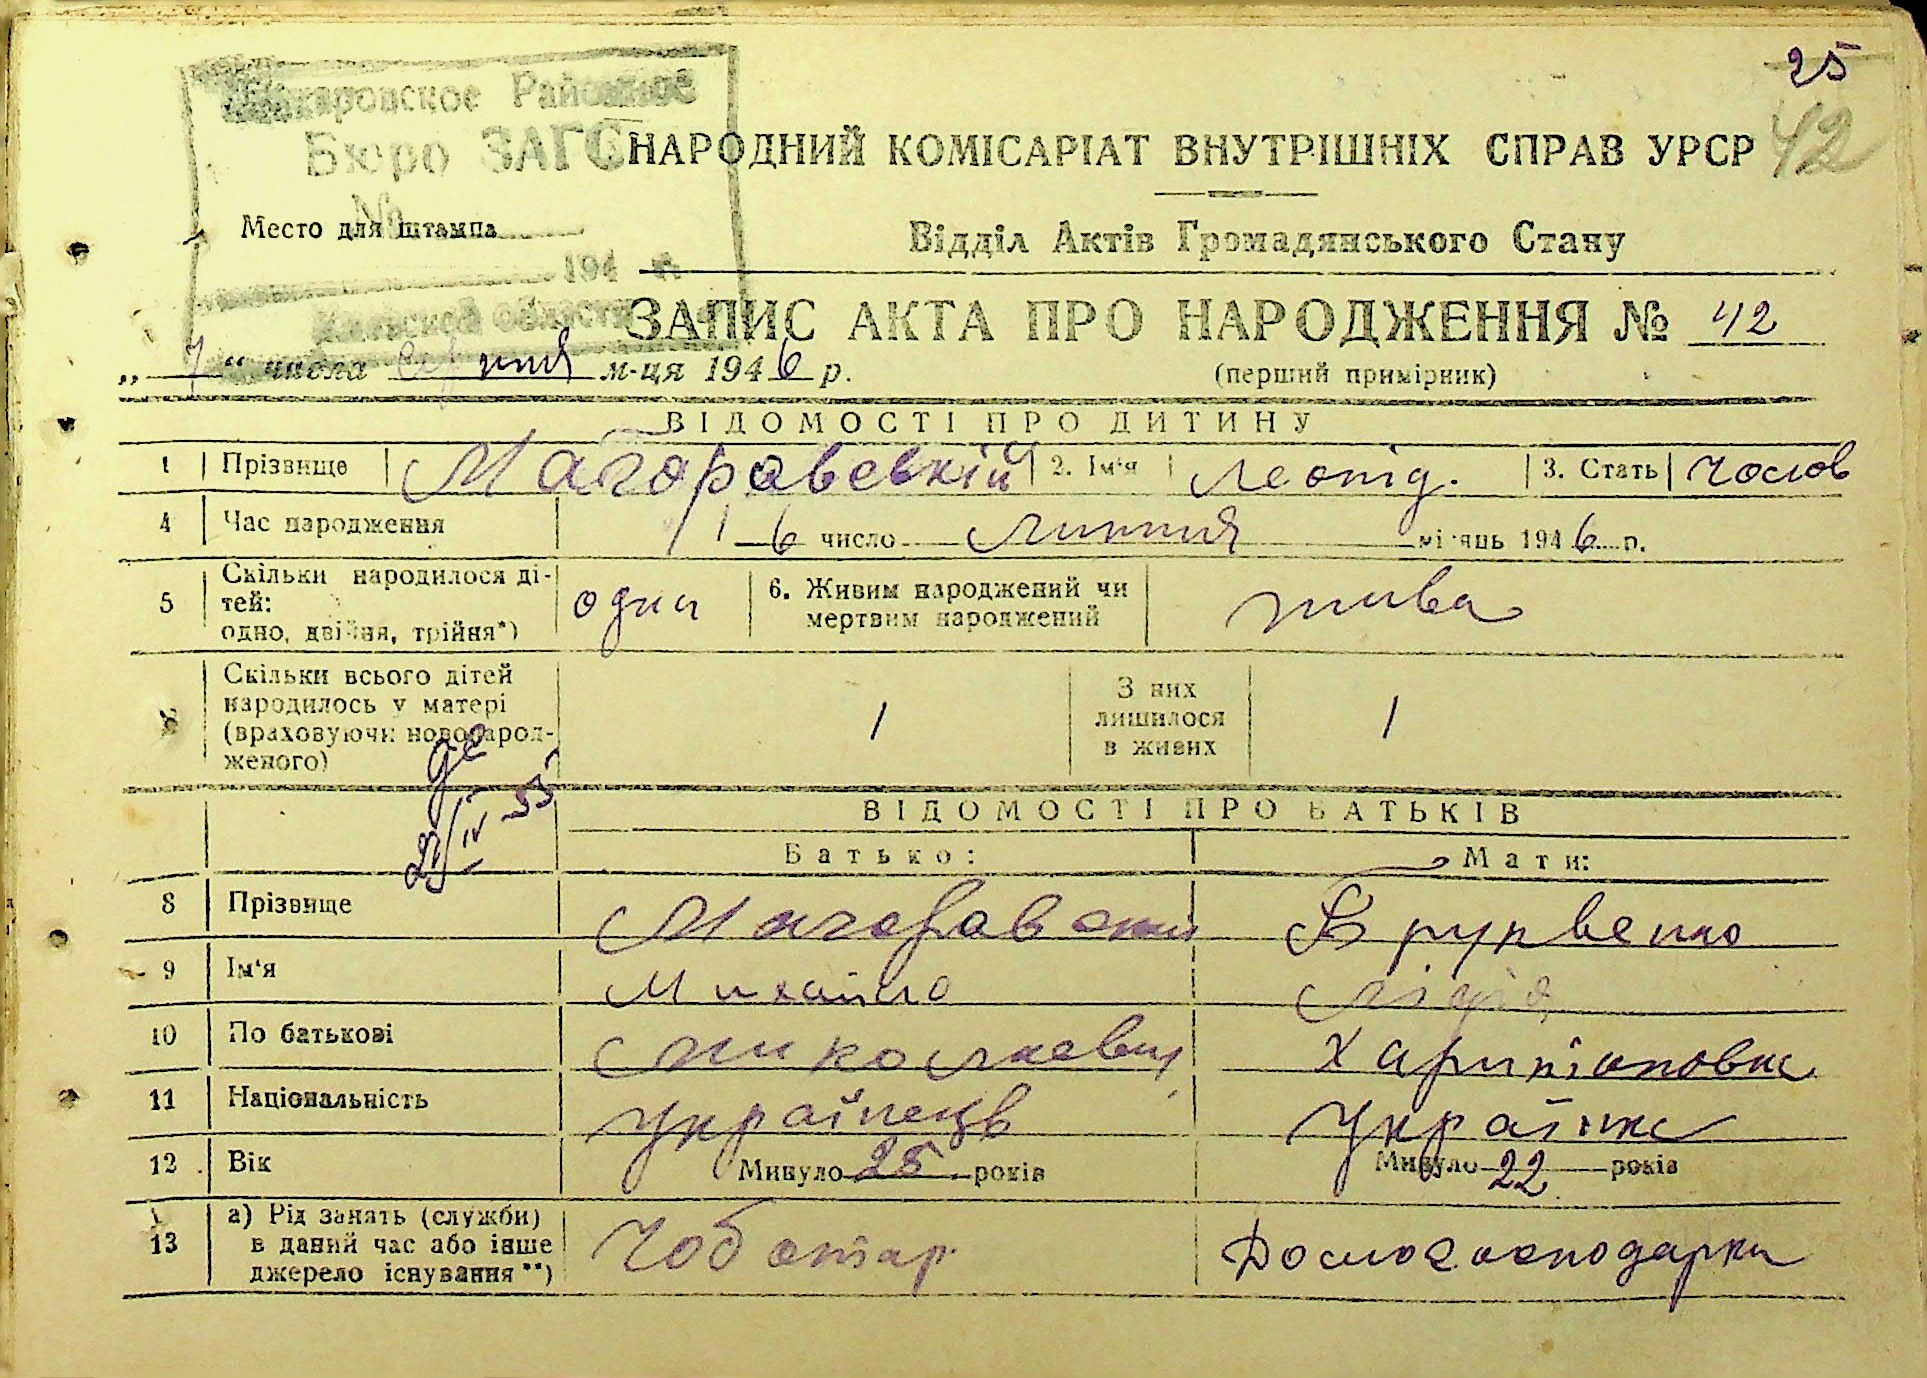 25
42
Макаровское Районное
Бюро ЗАГС
№
194 г.
Киевской области
НАРОДНИЙ КОМІСАРІАТ ВНУТРІШНІХ СПРАВ УРСР
Место для штампа
Відділ Актів Громадянського Стану
ЗАПИС АКТА ПРО НАРОДЖЕННЯ № 42
„ 7 “ числа серпня м-ця 1946 р.
(перший примірник)
ВІДОМОСТІ ПРО ДИТИНУ
1 Прізвище 2. Ім'я Леонід. 3. Стать чолов
4 Час народження 6 число липня місяць 1946 р.
5 Скільки народилося ді-
тей:
одно, двійня, трійня*)
одна
6. Живим народжений чи
мертвим народжений
жива
Скільки всього дітей
народилось у матері
(враховуючи новонарод-
женого)
1
З них
лишилося
в живих
1
IV 55
ВІДОМОСТІ ПРО БАТЬКІВ
Батько: Мати:
8 Прізвище
9 Ім'я Михайло Лідія
10 По батькові Миколаевич Харитоновна
11 Національність Українець Українка
12 Вік Минуло 25 років Минуло 22 років
13 а) Рід занять (служби)
в даний час або інше
джерело існування**)
Чоботар Домогосподарка